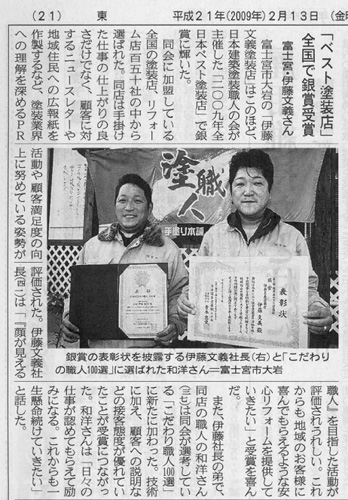 （21）　東　平成21年(2009年)2月13日（金
「ベスト塗装店」
全国で銀賞受賞
富士宮・伊藤文義さん
富士宮市大岩の「伊藤
文義塗装店」はこのほど、
日本建築塗装職人の会が
主催した「二〇〇九年全
日本ベスト塗装店」で銀
賞に輝いた。
同会に加盟している
全国の塗装店、リフォー
ム店百五十社の中から
選ばれた。同店は手掛け
た仕事の仕上がりの良
さだけでなく、顧客に対
するニュースレターや
地域住民への広報紙を
作製するなど、塗装業界
への理解を深めるＰＲ
活動や顧客満足度の向
上に努めている姿勢が
評価された。伊藤文義社
長は「『顔が見える
職人』を目指した活動が
評価されうれしい。これ
からも地域のお客様に
喜んでもらえるような安
心リフォームを提供して
いきたい」と受賞を喜ん
だ。
また、伊藤社長の弟で、
同店の職人の和洋さん
は同会が選考してい
る「こだわり職人100選」
に新たに加わった。技術
に加え、顧客への説明な
どの接客態度が優れてい
たことが受賞につながっ
た。和洋さんは「日々の
仕事が認めてもらえて励
みになる。これからも一
生懸命続けていきたい」
と話した。
塗職人
手塗り本舗
表彰状
銀賞の表彰状を披露する伊藤文義社長(右)と「こだわり
の職人100選」に選ばれた和洋さん＝富士宮市大岩